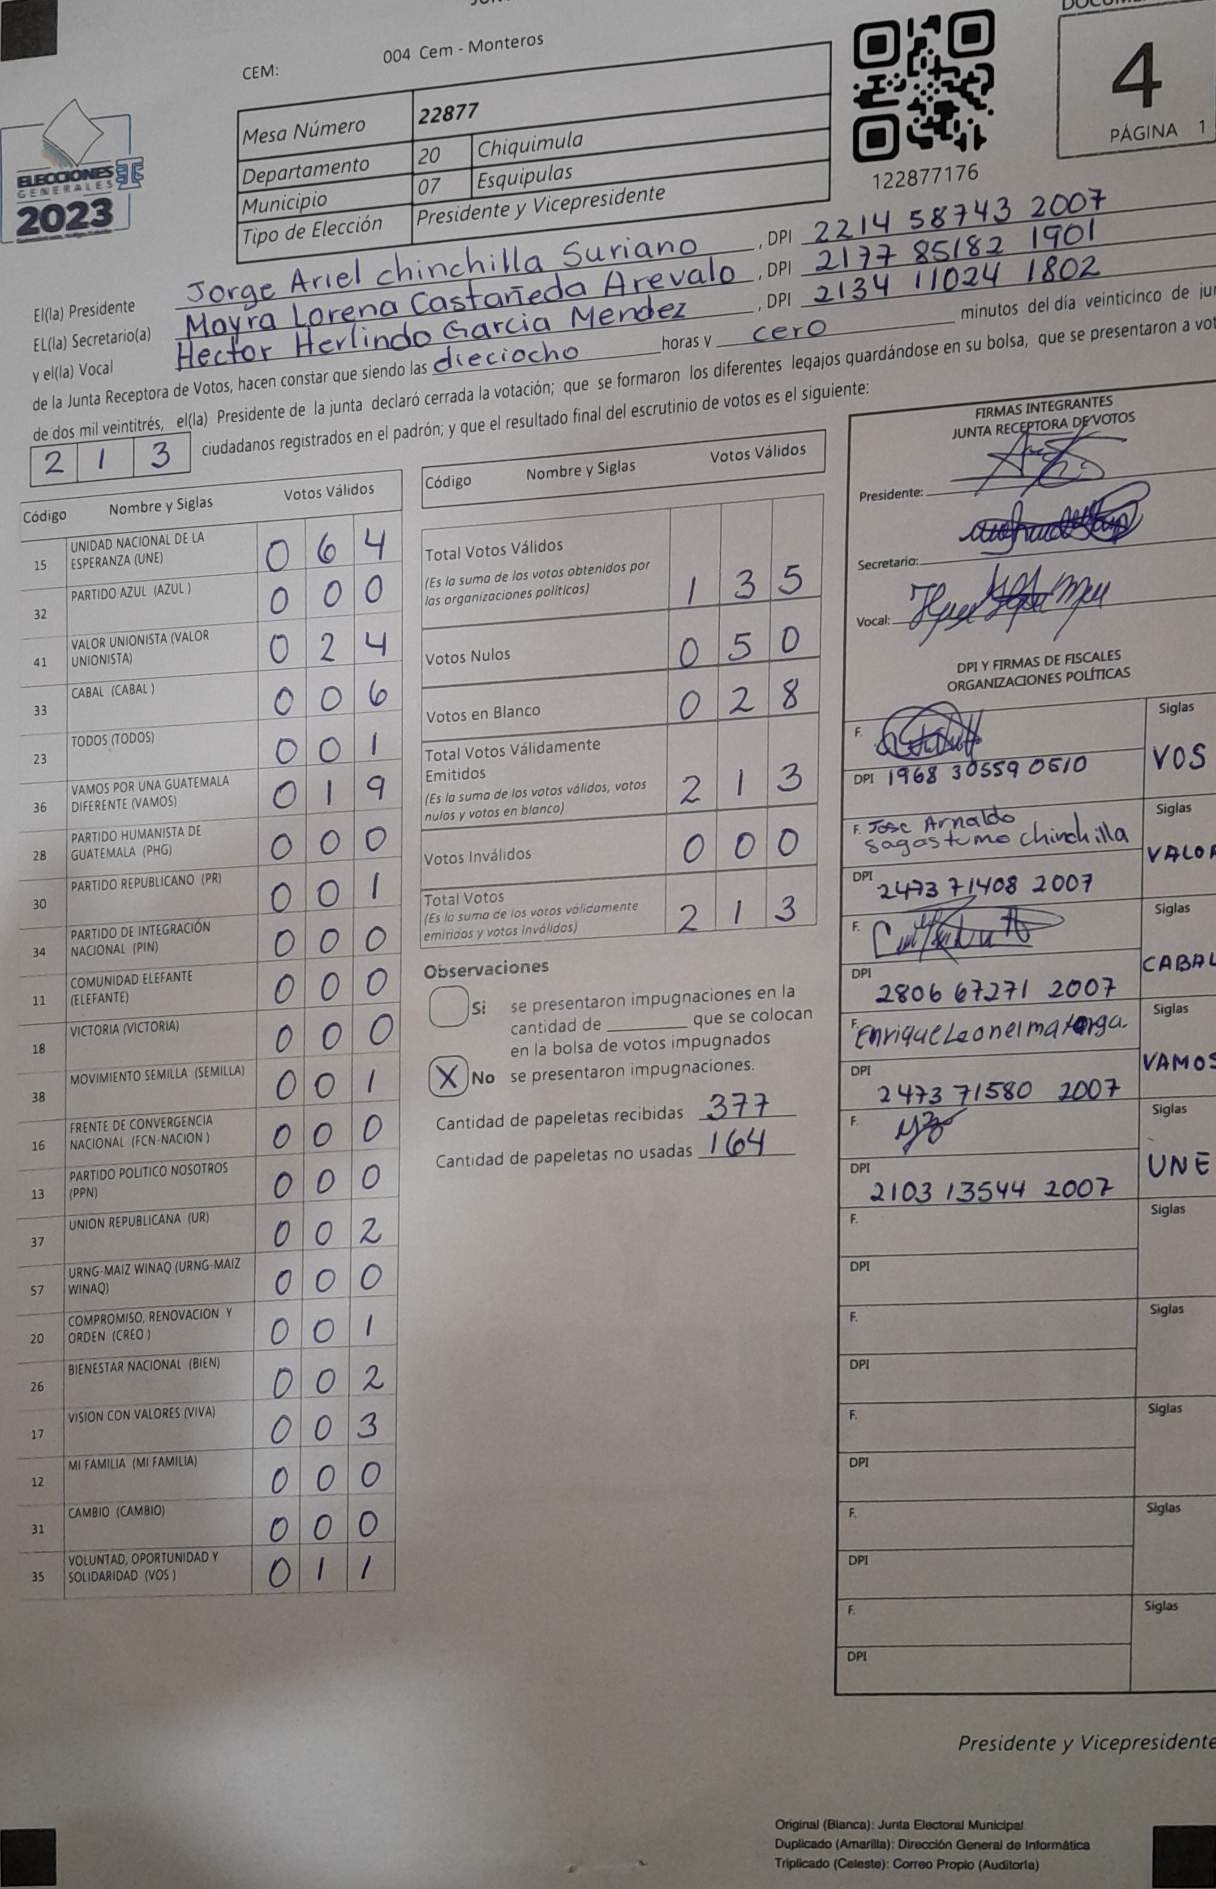 CEM: 004 Cem - Monteros
Mesa Número 22877
Departamento 20 Chiquimula
Municipio 07 Esquipulas
Tipo de Elección Presidente y Vicepresidente
ELECCIONES
GENERALES
2023
122877176
4
PÁGINA 1
El(la) Presidente Jorge Ariel chinchilla Suriano, DPI 2214 58743 2007
EL(la) Secretario(a) Mayra Lorena Castañeda Arevalo, DPI 2177 85182 1901
y el(la) Vocal Hector Herlindo Garcia Mendez, DPI 2134 11024 1802
de la Junta Receptora de Votos, hacen constar que siendo las dieciocho horas y cero minutos del día veinticinco de
de dos mil veintitrés, el(la) Presidente de la junta declaró cerrada la votación; que se formaron los diferentes legajos quardándose en su bolsa, que se presentaron a
2 1 3 ciudadanos registrados en el padrón; y que el resultado final del escrutinio de votos es el siguiente:
Código Nombre y Siglas Votos Válidos
15 UNIDAD NACIONAL DE LA
ESPERANZA (UNE) 0 6 4
32 PARTIDO AZUL (AZUL ) 0 0 0
41 VALOR UNIONISTA (VALOR
UNIONISTA) 0 2 4
33 CABAL (CABAL ) 0 0 6
23 TODOS (TODOS) 0 0 1
36 VAMOS POR UNA GUATEMALA
DIFERENTE (VAMOS) 0 1 9
28 PARTIDO HUMANISTA DE
GUATEMALA (PHG) 0 0 0
30 PARTIDO REPUBLICANO (PR) 0 0 1
34 PARTIDO DE INTEGRACIÓN
NACIONAL (PIN) 0 0 0
11 COMUNIDAD ELEFANTE
(ELEFANTE) 0 0 0
18 VICTORIA (VICTORIA) 0 0 0
38 MOVIMIENTO SEMILLA (SEMILLA) 0 0 1
16 FRENTE DE CONVERGENCIA
NACIONAL (FCN-NACION ) 0 0 0
13 PARTIDO POLITICO NOSOTROS
(PPN) 0 0 0
37 UNION REPUBLICANA (UR) 0 0 2
57 URNG-MAIZ WINAQ (URNG-MAIZ
WINAQ) 0 0 0
20 COMPROMISO, RENOVACION Y
ORDEN (CREO ) 0 0 1
26 BIENESTAR NACIONAL (BIEN) 0 0 2
17 VISION CON VALORES (VIVA) 0 0 3
12 MI FAMILIA (MI FAMILIA) 0 0 0
31 CAMBIO (CAMBIO) 0 0 0
35 VOLUNTAD, OPORTUNIDAD Y
SOLIDARIDAD (VOS ) 0 1 1
Código Nombre y Siglas Votos Válidos
Total Votos Válidos
(Es la suma de los votos obtenidos por
las organizaciones políticas) 1 3 5
Votos Nulos 0 5 0
Votos en Blanco 0 2 8
Total Votos Válidamente
Emitidos
(Es la suma de los votos válidos, votos
nulos y votos en blanco) 2 1 3
Votos Inválidos 0 0 0
Total Votos
(Es la suma de los votos válidamente
emitidos y votos inválidos) 2 1 3
Observaciones
Si se presentaron impugnaciones en la
cantidad de ________ que se colocan
en la bolsa de votos impugnados
X No se presentaron impugnaciones.
Cantidad de papeletas recibidas 377
Cantidad de papeletas no usadas 164
FIRMAS INTEGRANTES
JUNTA RECEPTORA DE VOTOS
Presidente:
Secretario:
Vocal:
DPI Y FIRMAS DE FISCALES
ORGANIZACIONES POLÍTICAS
F. Siglas
DPI 1968 30559 0510 VOS
F. Jose Arnaldo Siglas
Sagastumo Chinchilla
DPI 2473 71408 2007 VALOR
F. Siglas
DPI 2806 67271 2007 CABAL
F. Enrique Leonel Siglas
DPI 2473 71580 2007 VAMOS
F. Siglas
DPI 2103 13544 2007 UNE
F. Siglas
DPI
F. Siglas
DPI
F. Siglas
DPI
F. Siglas
DPI
F. Siglas
DPI
Presidente y Vicepresidente
Original (Blanca): Junta Electoral Municipal
Duplicado (Amarilla): Dirección General de Informática
Triplicado (Celeste): Correo Propio (Auditoría)